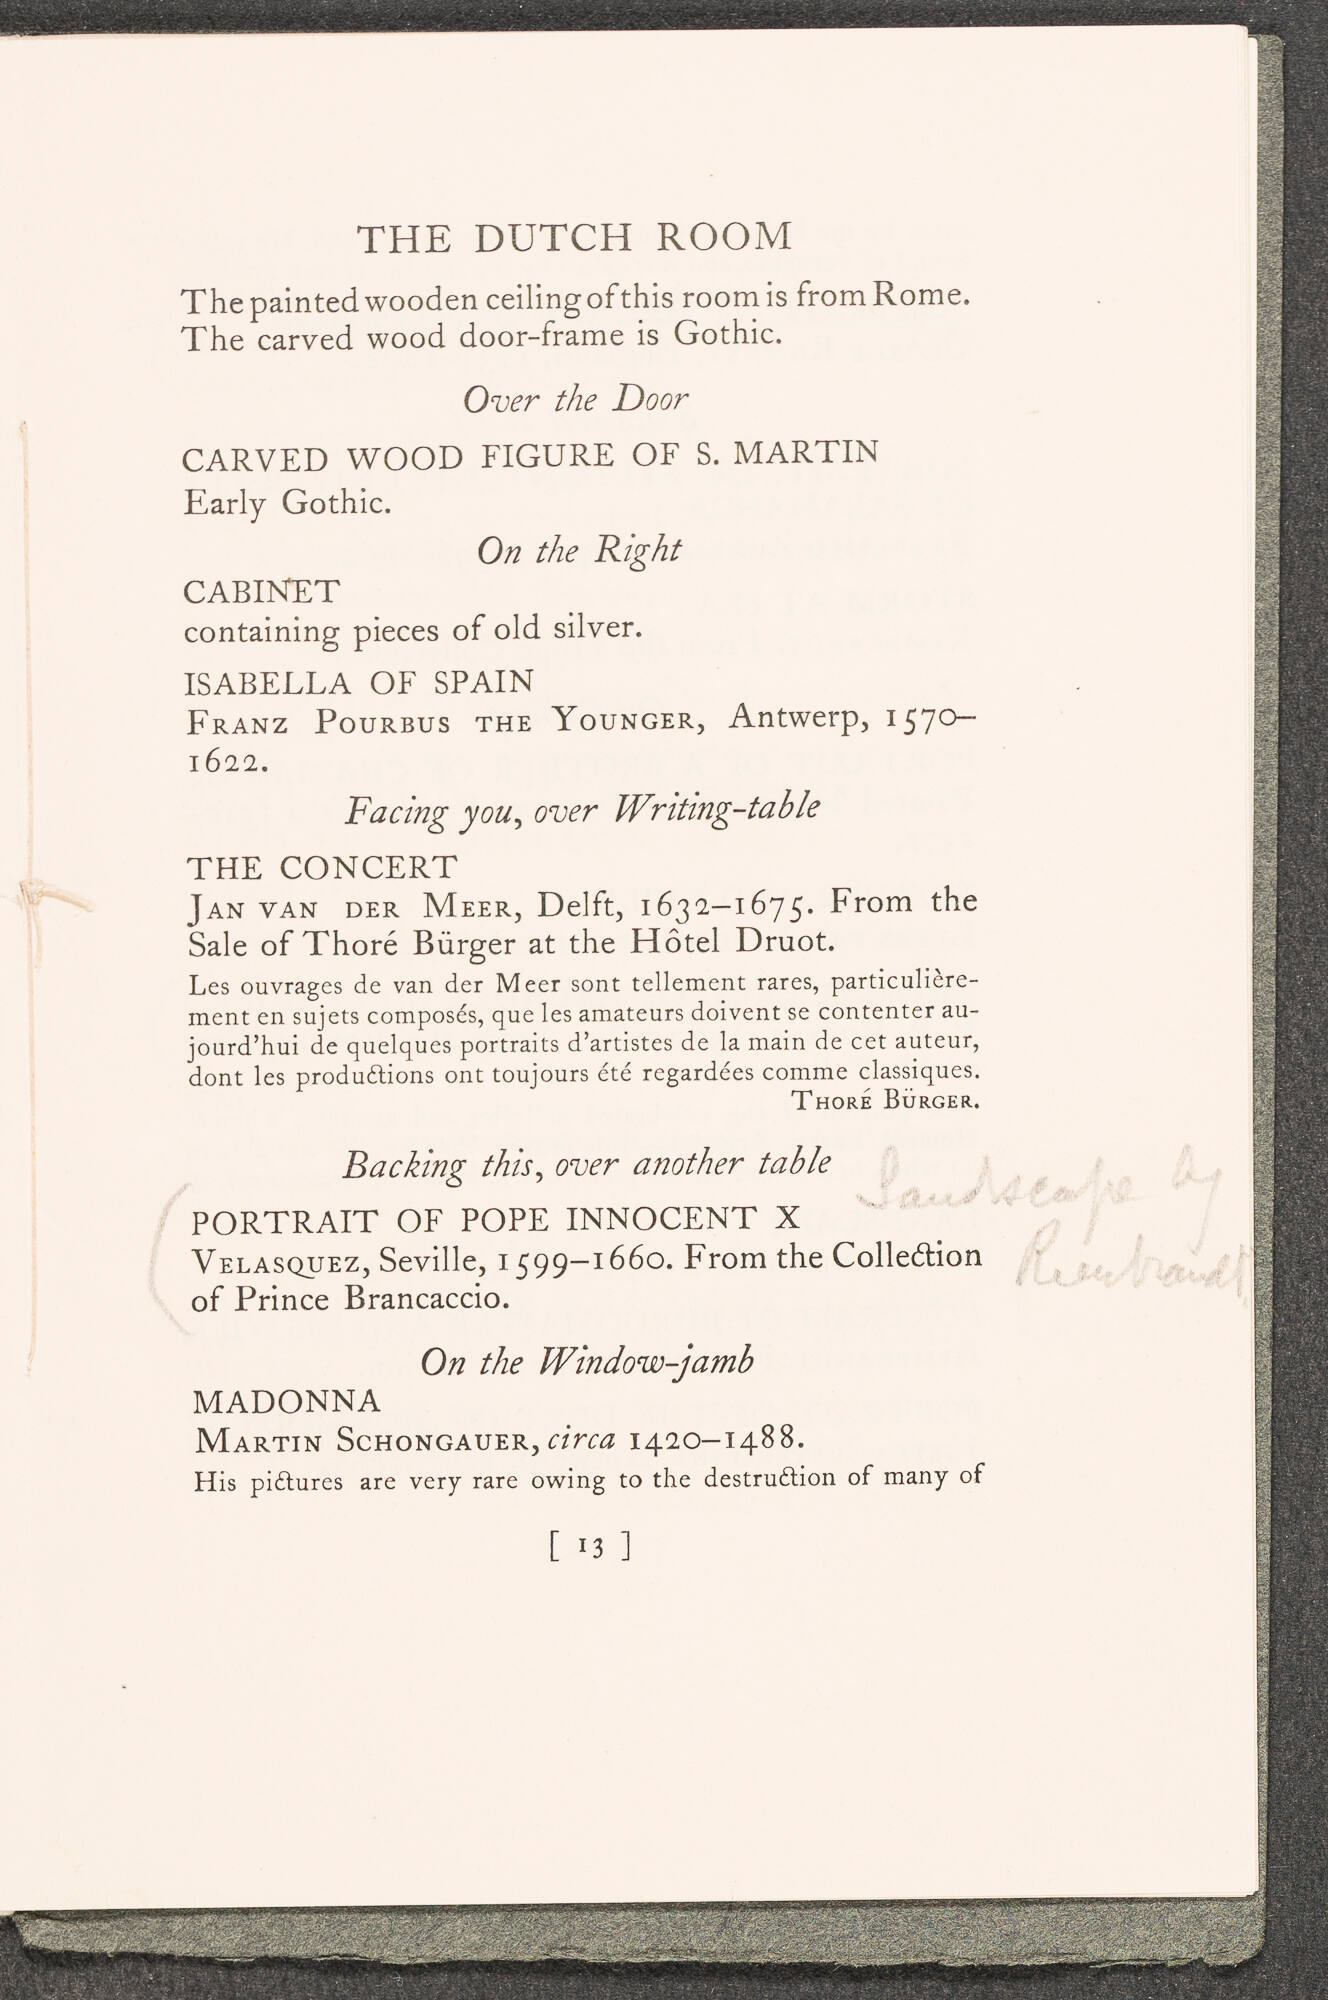 THE DUTCH ROOM
The painted wooden ceiling of this room is from Rome.
The carved wood door-frame is Gothic.
Over the Door
CARVED WOOD FIGURE OF S. MARTIN
Early Gothic.
On the Right
CABINET
containing pieces of old silver.
ISABELLA OF SPAIN
FRANZ POURBUS THE YOUNGER, Antwerp, 1570–
1622.
Facing you, over Writing-table
THE CONCERT
JAN VAN DER MEER, Delft, 1632–1675. From the
Sale of Thoré Bürger at the Hôtel Druot.
Les ouvrages de van der Meer sont tellement rares, particulière-
ment en sujets composés, que les amateurs doivent se contenter au-
jourd'hui de quelques portraits d'artistes de la main de cet auteur,
dont les productions ont toujours été regardées comme classiques.
THORÉ BÜRGER.
Backing this, over another table
Landscape by
Rembrandt
PORTRAIT OF POPE INNOCENT X
VELASQUEZ, Seville, 1599–1660. From the Collection
of Prince Brancaccio.
On the Window-jamb
MADONNA
MARTIN SCHONGAUER, circa 1420–1488.
His pictures are very rare owing to the destruction of many of
[ 13 ]